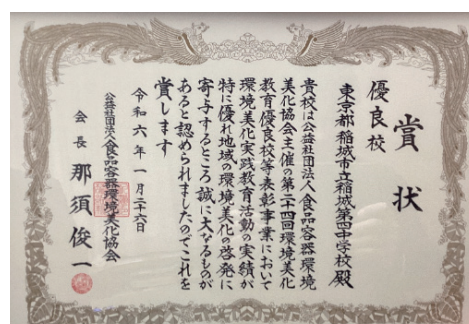 賞状
優良校
東京都 稲城市立稲城第四中学校 殿
貴校は公益社団法人食品容器環境
美化協会主催の第二十四回環境美化
教育優良校等表彰事業において
環境美化実践教育活動の実績が
特に優れ地域の環境美化の啓発に
寄与するところ誠に大なるものが
あると認められましたのでこれを
賞します
令和六年一月二十六日
公益社団法人食品容器環境美化協会
会長 那須俊一